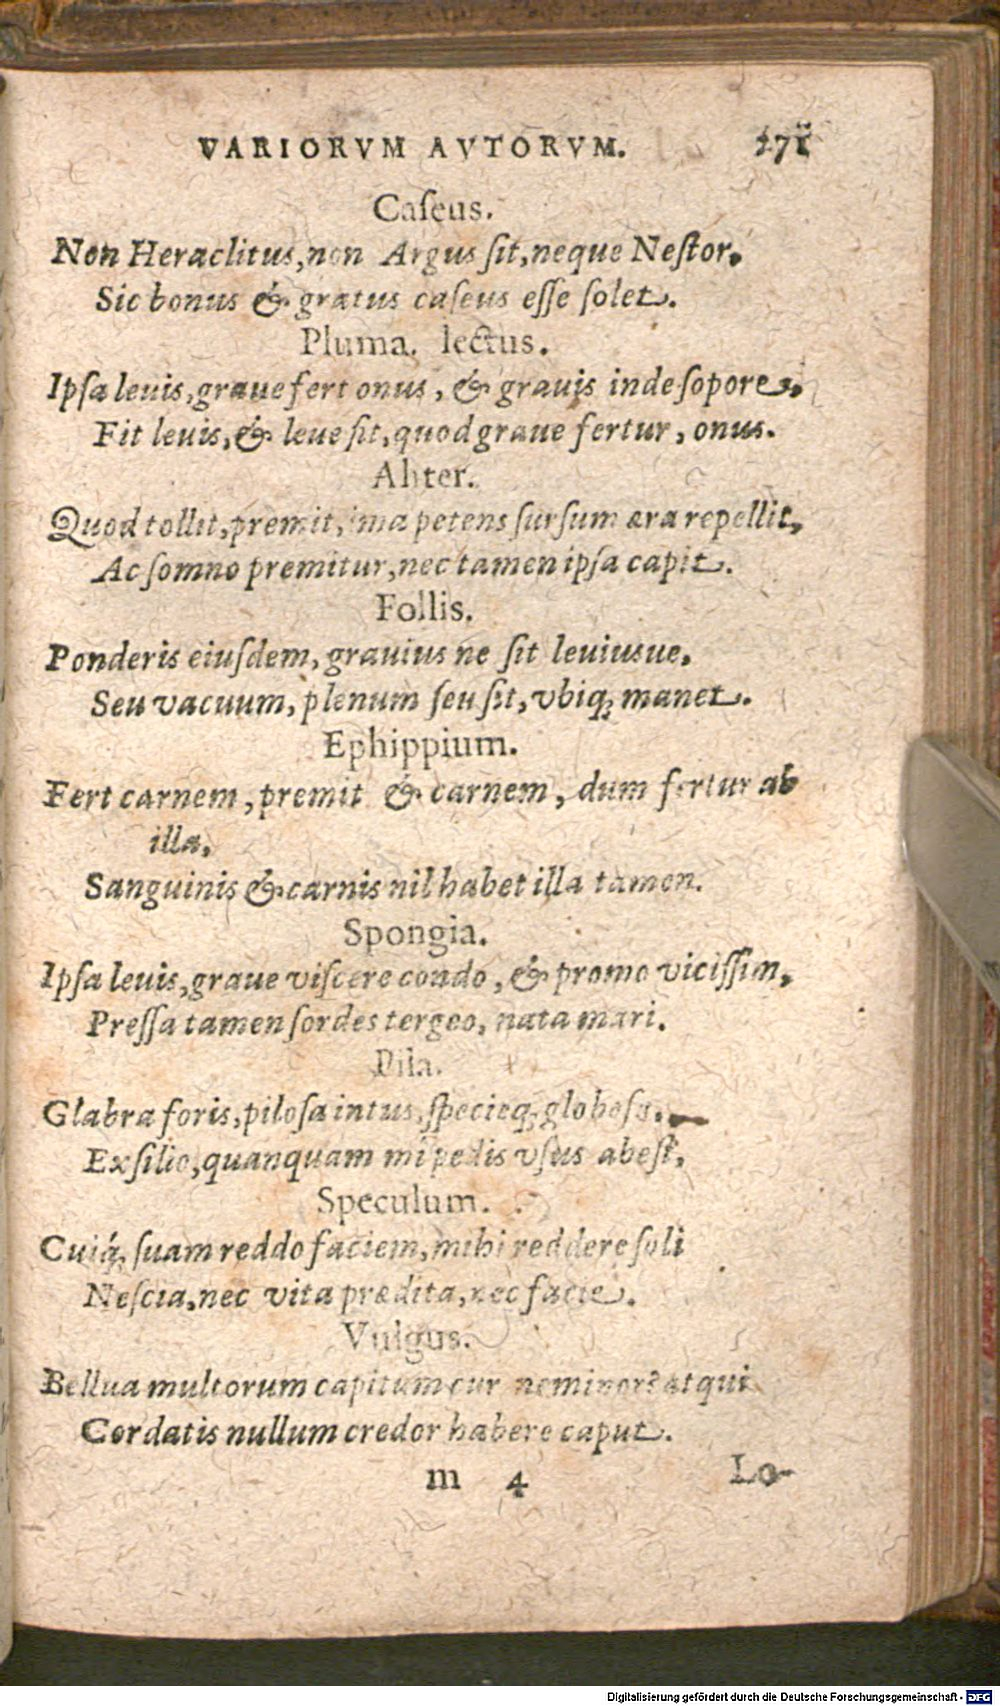 VARIORVM AVTORVM. 271
Caſeus.
Non Heraclitus, non Argus ſit, neque Neſtor,
Sic bonus & gratus caſeus eſſe ſolet.
Pluma. lectus.
Ipſa leuis, graue fert onus, & grauis inde ſopore,
Fit leuis, & leue ſit, quod graue fertur, onus.
Aliter.
Quod tollit, premit, ima petens ſurſum æra repellit,
Ac ſomno premitur, nec tamen ipſa capit.
Follis.
Ponderis eiuſdem, grauius ne ſit leuiusue,
Seu vacuum, plenum ſeu ſit, vbiq; manet.
Ephippium.
Fert carnem, premit & carnem, dum fertur ab
illa,
Sanguinis & carnis nil habet illa tamen.
Spongia.
Ipſa leuis, graue viſcere condo, & promo viciſſim,
Preſſa tamen ſordes tergeo, nata mari.
Pila.
Glabra foris, piloſa intus, ſpecieq; globoſa.
Exſilio, quanquam mî pedis vſus abeſt,
Speculum.
Cuiq́; ſuam reddo faciem, mihi reddere ſoli
Neſcia, nec vita prædita, nec facie.
Vulgus.
Bellua multorum capitum cur nominor? atqui
Cordatis nullum credor habere caput.
m 4 Lo-
Digitalisierung gefördert durch die Deutsche Forschungsgemeinschaft - DFG